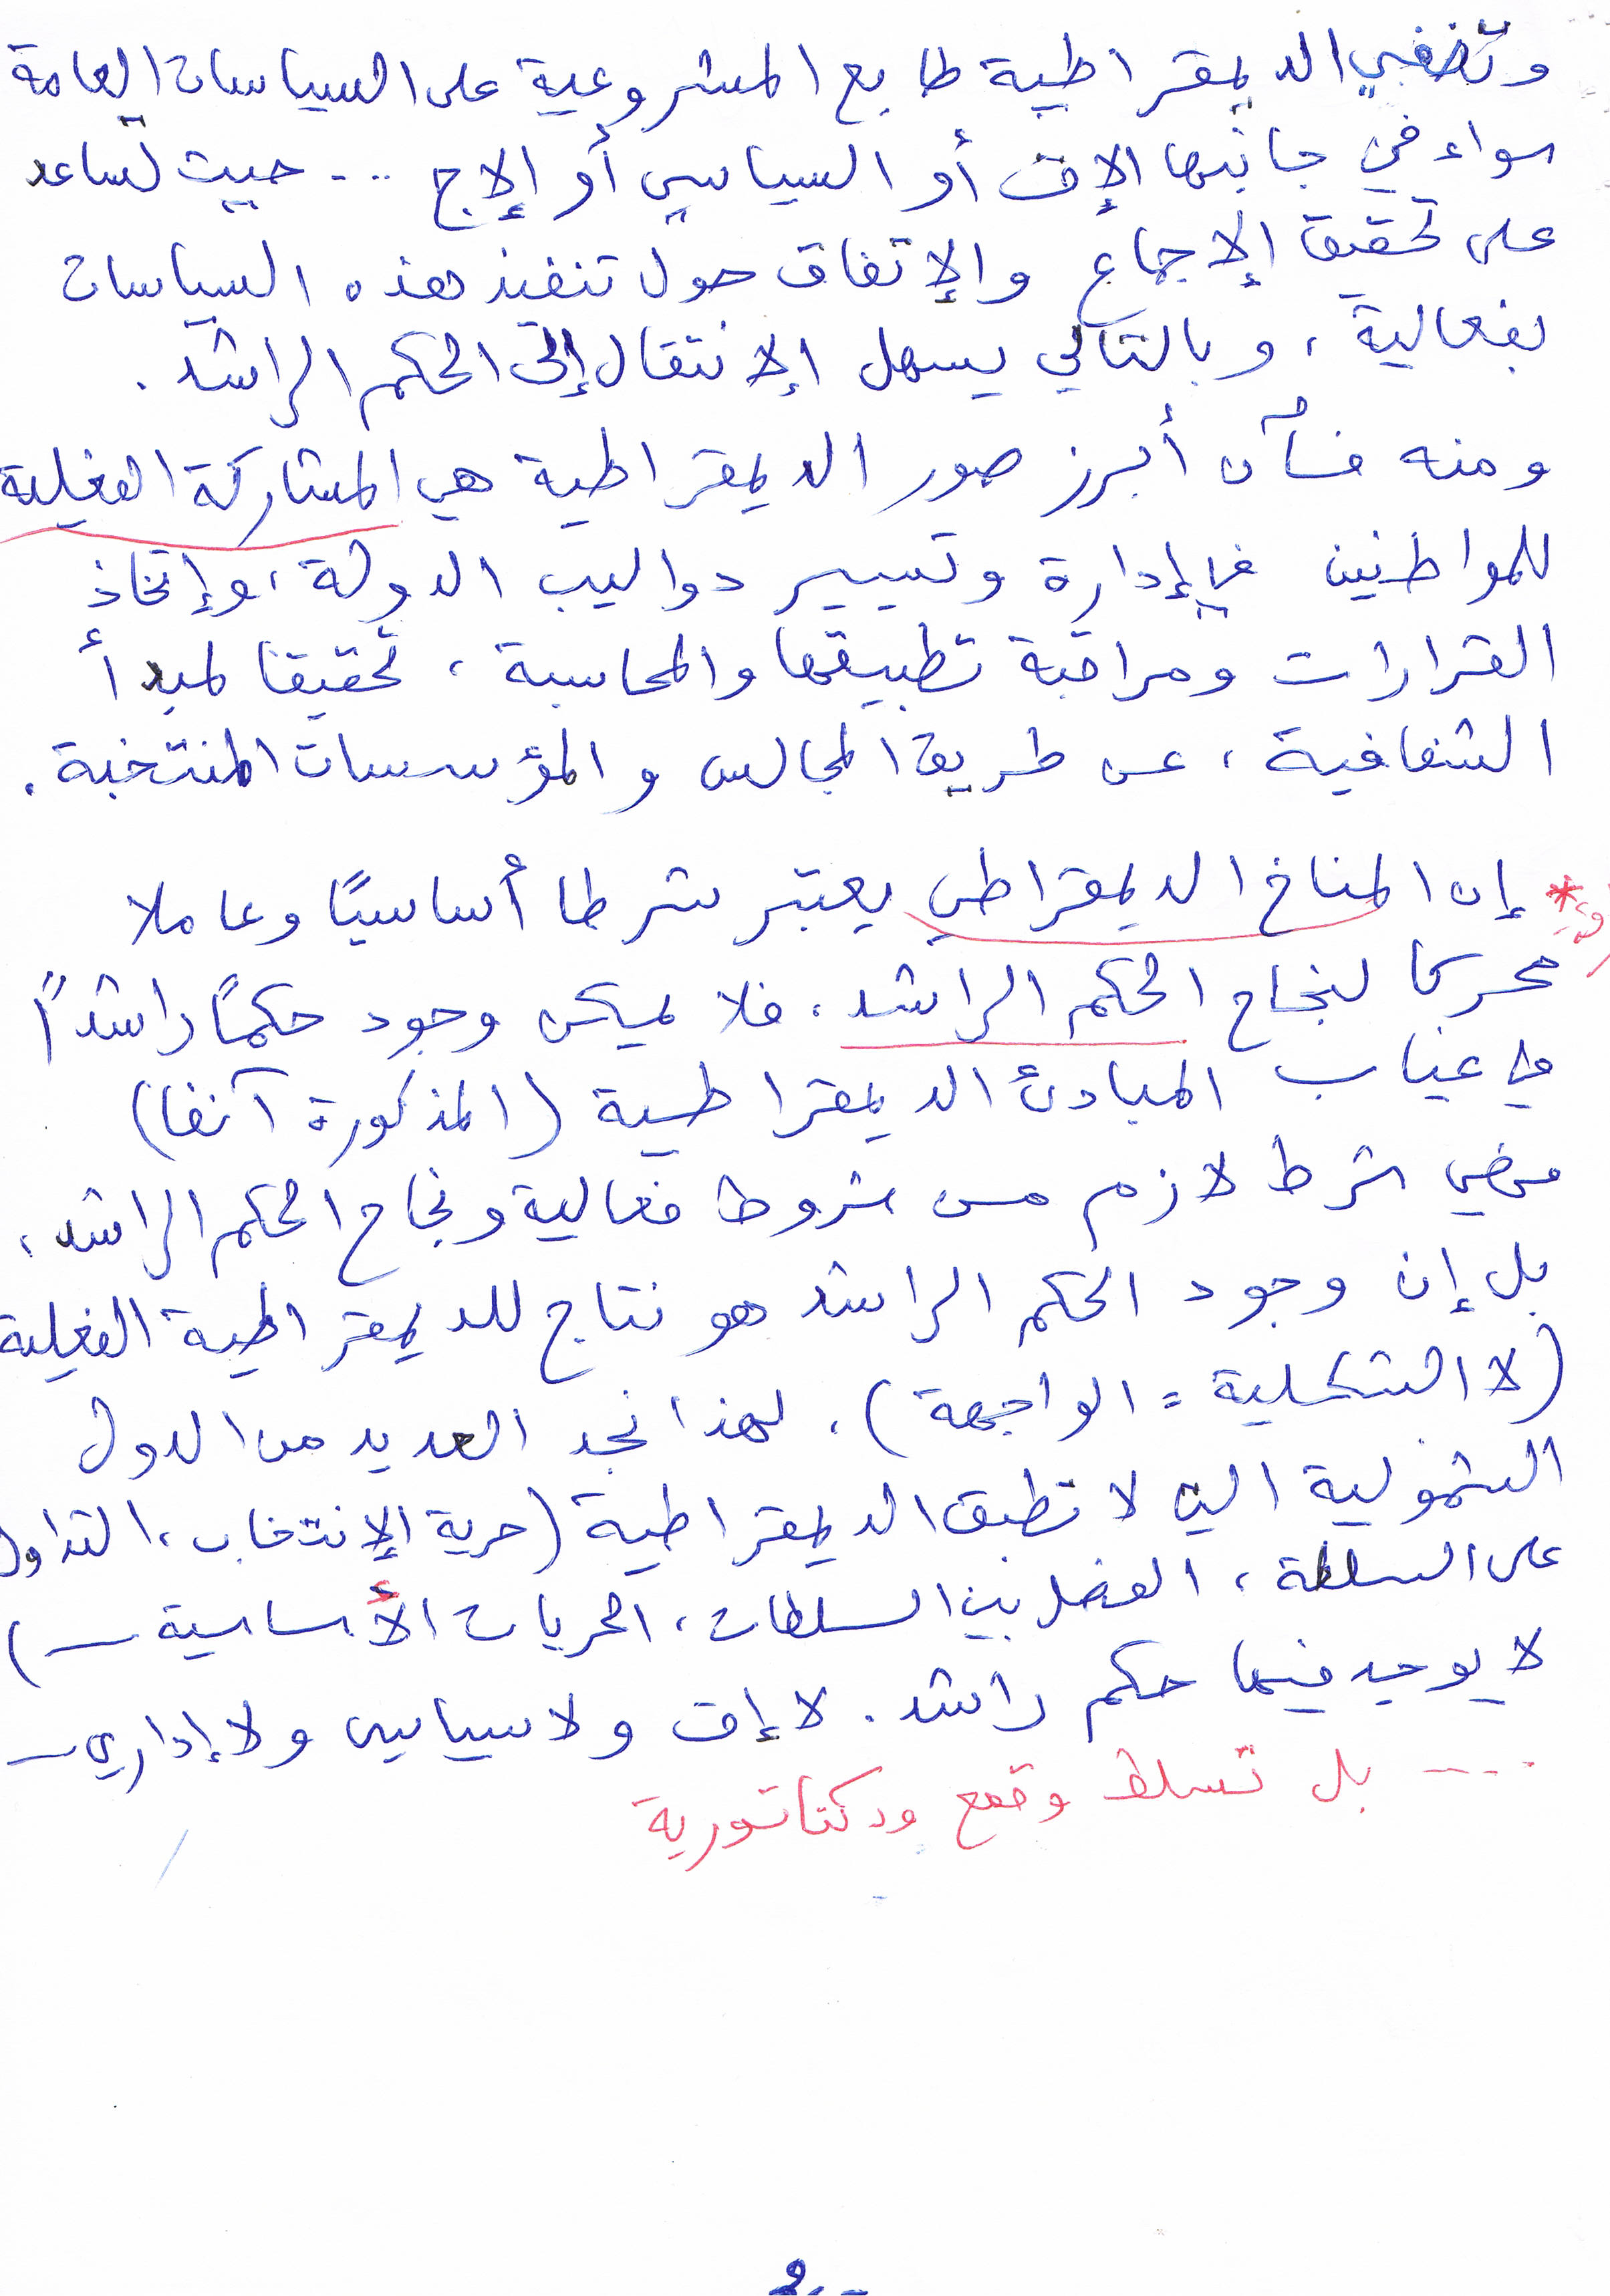 وتضفي الديمقراطية طابع المشروعية على السياسات العامة
سواء في جانبها الإق أو السياسي أو الإج ... حيث تساعد
على تحقيق الإجماع والإتفاق حول تنفيذ هذه السياسات
بفعالية، وبالتالي يسهل الإنتقال إلى الحكم الراشد.
ومنه فــإن أبرز صور الديمقراطية هي المشاركة الفعلية
للمواطنين في إدارة وتسيير دواليب الدولة، وإتخاذ
القرارات ومراقبة تطبيقها والمحاسبة، تحقيقا لمبدأ
الشفافية، عن طريق المجالس والمؤسسات المنتخبة.
* إن المناخ الديمقراطي يعتبر شرطا أساسيًا وعاملا
محركا لنجاح الحكم الراشد. فلا يمكن وجود حكمًا راشدًا
في غياب المبادئ الديمقراطية (المذكورة آنفا)
فهي شرط لازم من شروط فعالية ونجاح الحكم الراشد،
بل إن وجود الحكم الراشد هو نتاج للديمقراطية الفعلية
(لا الشكلية = الواجهة). لهذا نجد العديد من الدول
الشمولية التي لا تطبق الديمقراطية (حرية الإنتخاب، التداول
على السلطة، الفصل بين السلطات، الحريات الأساسية ـــ)
لا يوجد فيها حكم راشد. لا إق ولا سياسي ولا إداري ـــ
.... بل تسلط وقمع ودكتاتورية